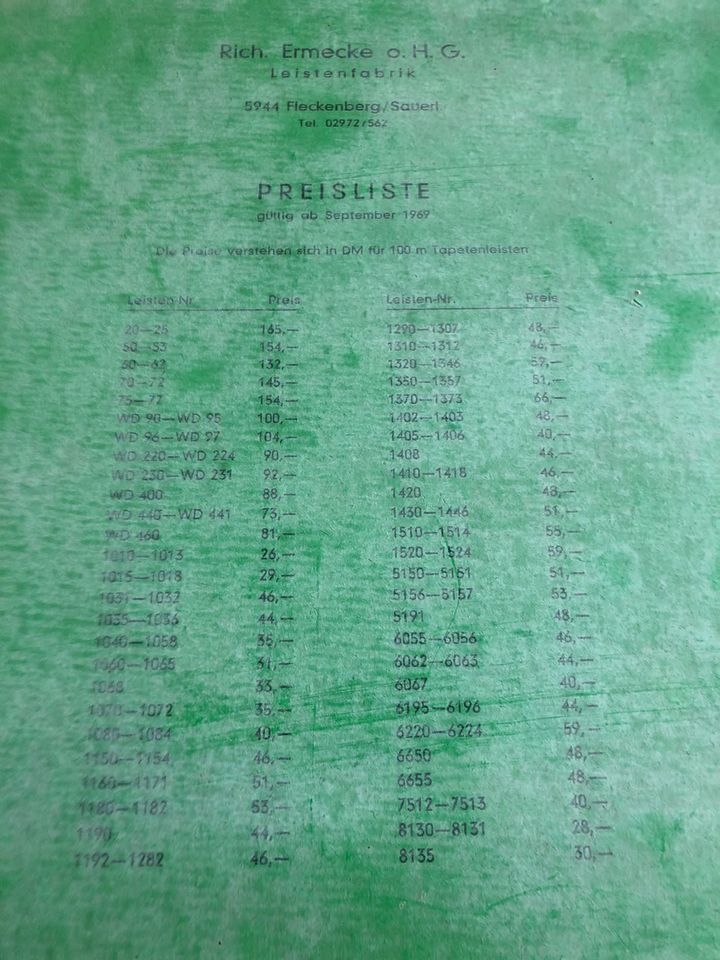 Rich. Ermecke o. H. G.
Leistenfabrik
5944 Fleckenberg/Sauerl.
Tel. 02972/562
PREISLISTE
gültig ab September 1969
Die Preise verstehen sich in DM für 100 m Tapetenleisten
Leisten-Nr. Preis
20—25 165,—
50—53 154,—
60—62 132,—
70—72 145,—
75—77 154,—
WD 90—WD 95 100,—
WD 96—WD 97 104,—
WD 220—WD 224 90,—
WD 230—WD 231 92,—
WD 400 88,—
WD 440—WD 441 73,—
WD 460 81,—
1010—1013 26,—
1015—1018 29,—
1031—1032 46,—
1035—1036 44,—
1040—1058 35,—
1060—1065 31,—
1068 33,—
1070—1072 35,—
1080—1084 40,—
1150—1154 46,—
1160—1171 51,—
1180—1182 53,—
1190 44,—
1192—1282 46,—
Leisten-Nr. Preis
1290—1307 48,—
1310—1312 46,—
1320—1346 59,—
1350—1357 51,—
1370—1373 66,—
1402—1403 48,—
1405—1406 40,—
1408 44,—
1410—1418 46,—
1420 48,—
1430—1446 51,—
1510—1514 55,—
1520—1524 59,—
5150—5151 51,—
5156—5157 53,—
5191 48,—
6055—6056 46,—
6062—6063 44,—
6067 40,—
6195—6196 44,—
6220—6224 59,—
6650 48,—
6655 48,—
7512—7513 40,—
8130—8131 28,—
8135 30,—